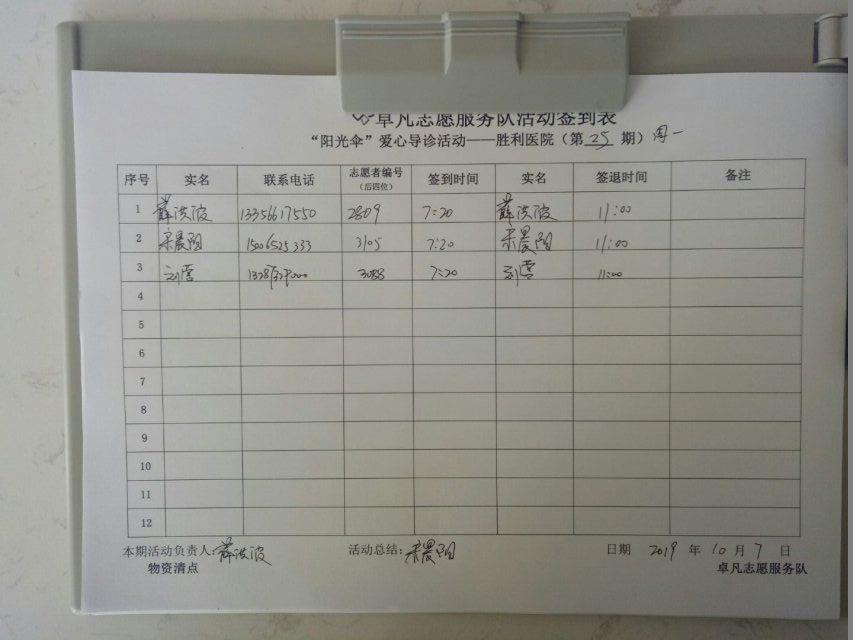 卓凡志愿服务队活动签到表
“阳光伞”爱心导诊活动——胜利医院（第 25 期）周一
序号 实名 联系电话 志愿者编号（后四位） 签到时间 实名 签退时间 备注
1 薛洪波 13356617550 2809 7:20 薛洪波 11:00
2 宋晨阳 15006525333 3105 7:20 宋晨阳 11:00
3 刘营 3088 7:20 刘营 11:00
4
5
6
7
8
9
10
11
12
本期活动负责人:薛洪波 活动总结:宋晨阳 日期 2019 年 10 月 7 日
物资清点 卓凡志愿服务队